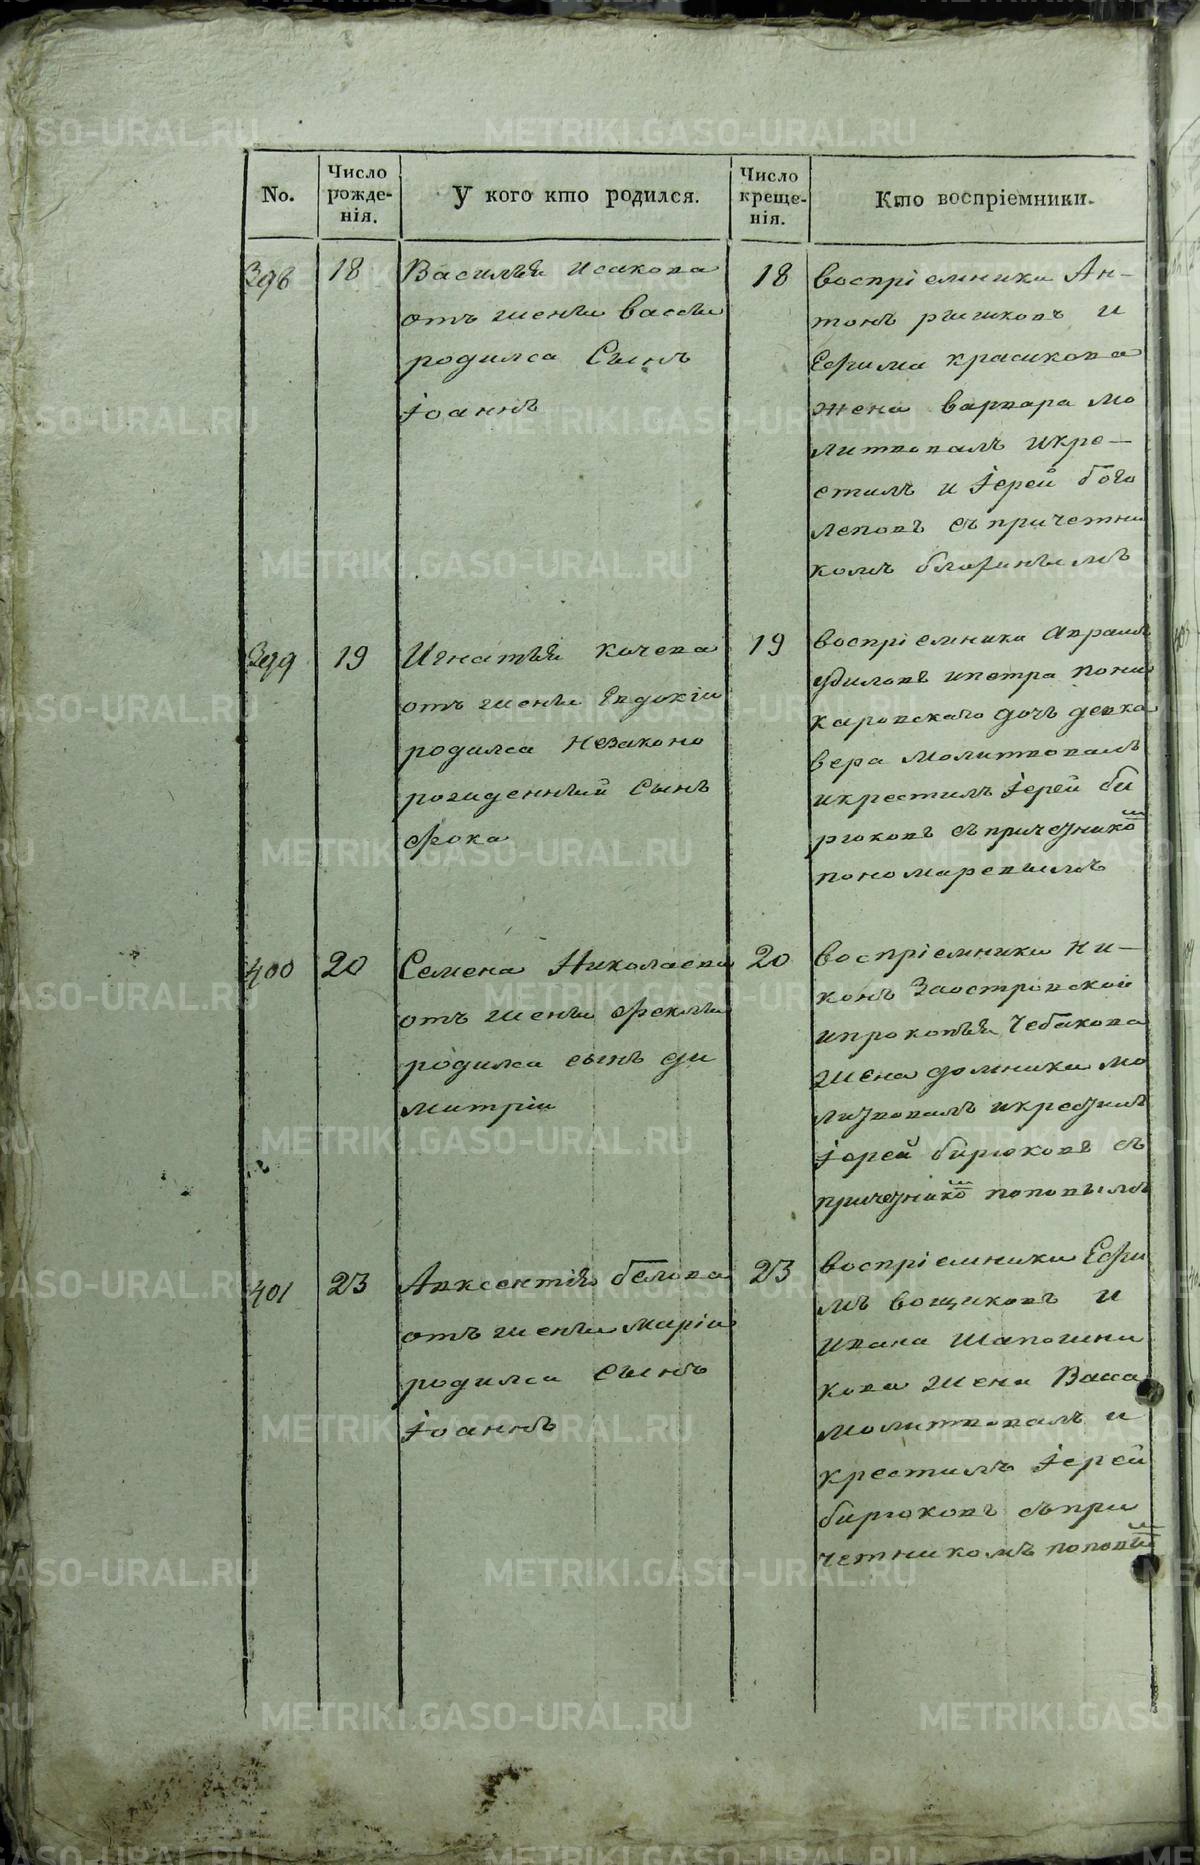 No.
Число рожде-нія.
У кого кто родился.
Число креще-нія.
Кто воспріемники.
398
18
Василья Исакова
отъ жены вассы
родилса Сынъ
Іоаннъ
18
воспріемники Ан-
тонъ рыжковъ и
Ефима красикова
жена варвара мо
литвовалъ икре-
стилъ и Іерей бого
леповъ съ причетни
комъ
399
19
Игнатья Кочева
отъ жены Евдокіи
родилса незаконо
рожденный Сынъ
фока
19
воспріемники авраамъ
ипетра пони
каровскаго дочь девка
вера молитвовалъ
икрестилъ Іерей би
рюковъ съ причетнико м
пономаревымъ
400
20
Семена Николаева
отъ жены феклы
родилса сынъ ди
митріи
20
воспріемники ни-
конъ Заостровской
ипрокопья Чебакова
жена домника мо
литвовалъ икрестилъ
Іерей бирюковъ съ
причетнико м поповымъ
401
23
Авксентія белова
отъ жены маріи
родилса Сынъ
Іоаннъ
23
воспріемники Ефи
мъ вощиковъ и
ивана Шапошни
кова жена Васса
молитвовалъ и
крестилъ Іерей
бирюковъ съпри
четникомъ поповы м
METRIKI.GASO-URAL.RU